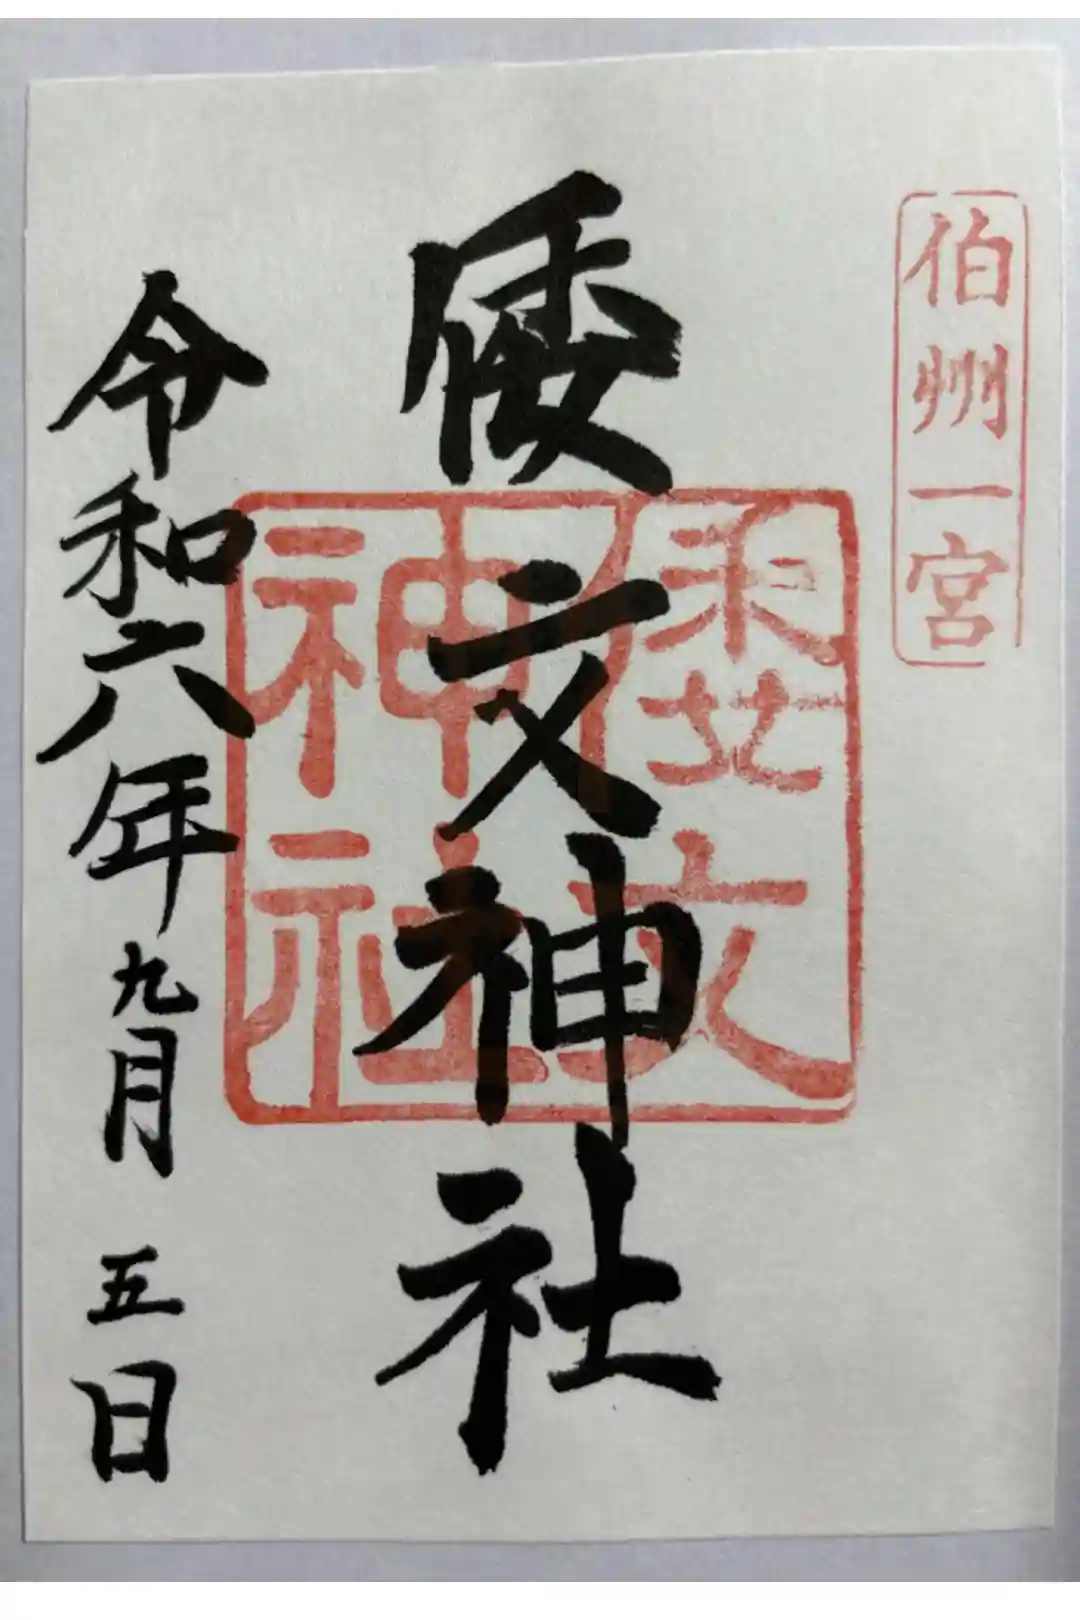 伯州一宮
倭文神社
倭文神社
令和六年九月五日